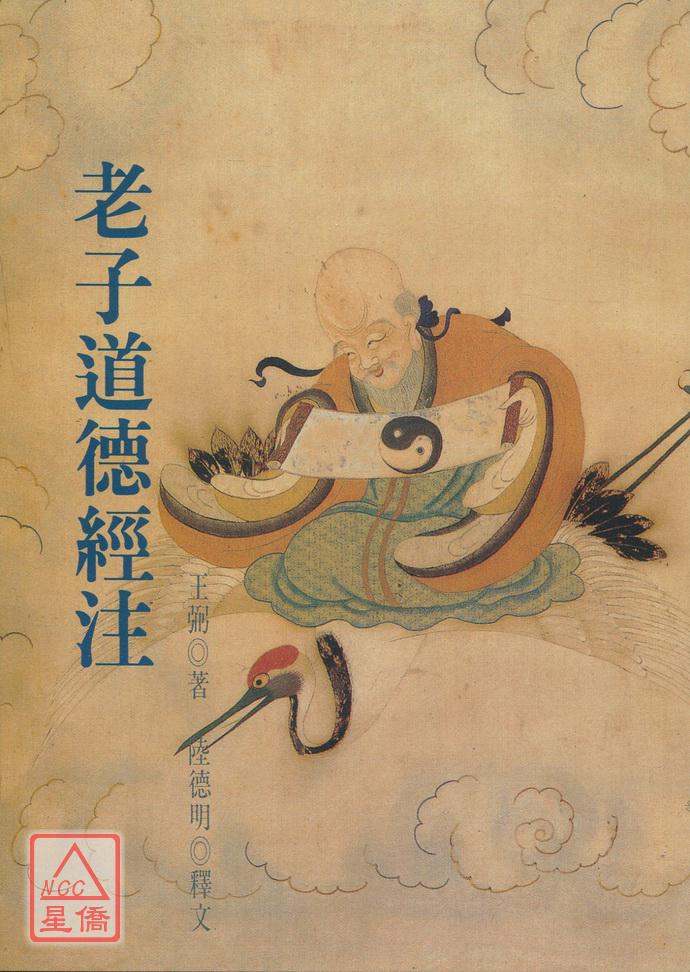 老子道德經注
王弼◎著
陸德明◎釋文
NCC
星僑